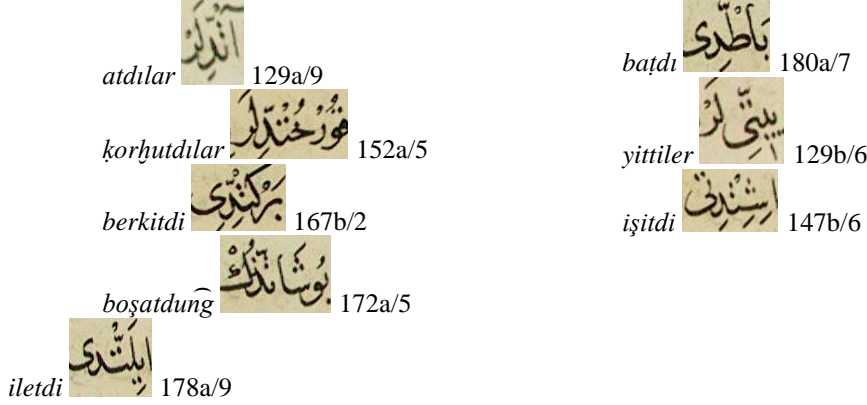 atdılar آتْدِلَرْ 129a/9
ḳorḫutdılar قُورْخُتْدِّلَرْ 152a/5
berkitdi بَرْكِتْدِّى 167b/2
boşatdun͡g بُوشَاتْدُّكْ 172a/5
iletdi اِيلَتْدِّى 178a/9
baṭdı بَاطْدِّى 180a/7
yittiler يِيتِّى لَرْ 129b/6
işitdi اِشِتْدِى 147b/6